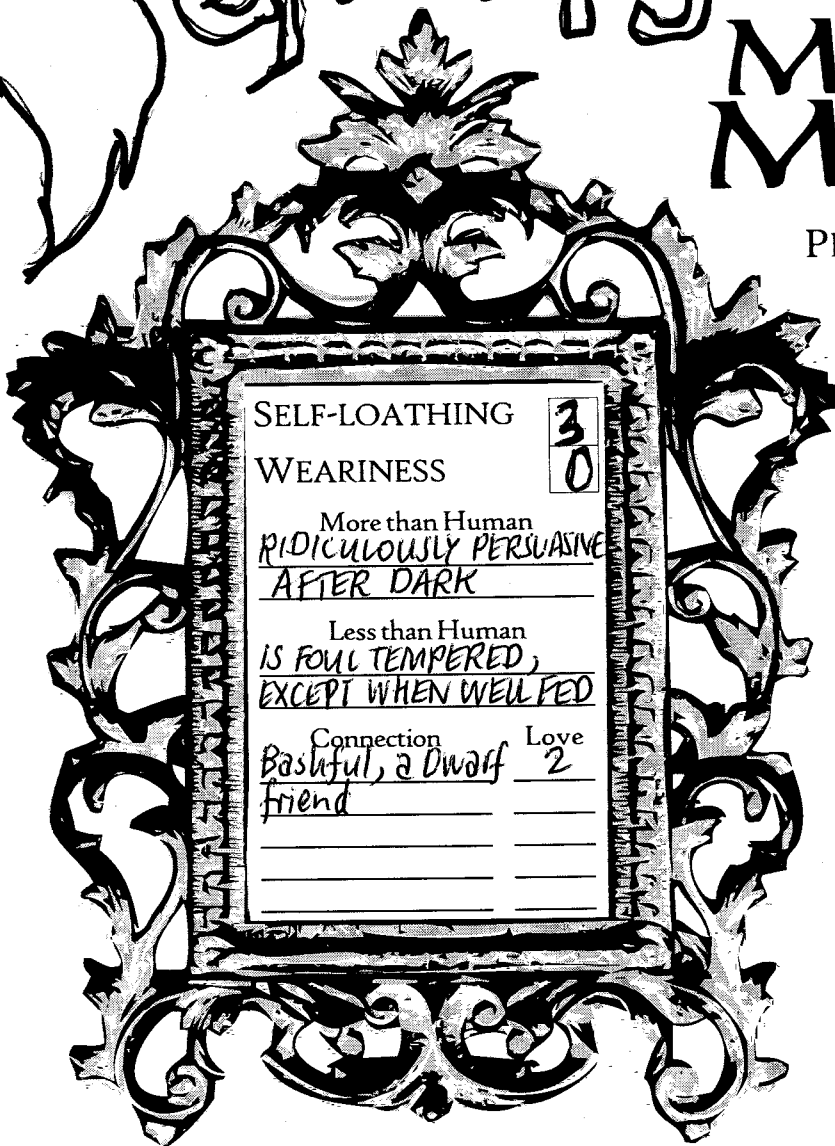 M
M
SELF-LOATHING 3
WEARINESS 0
More than Human
RIDICULOUSLY PERSUASIVE
AFTER DARK
Less than Human
IS FOUL TEMPERED,
EXCEPT WHEN WELL FED
Connection Love
Bashful, a Dwarf 2
friend